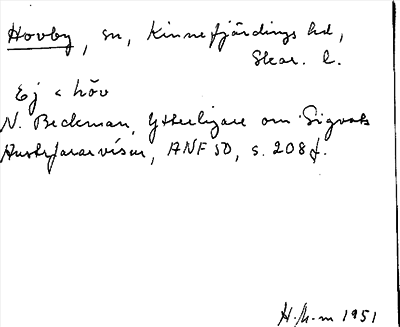 Hovby, sn, Kinnefjärdings hd,
Skar. l.
Ej < hōv
N. Beckman, Ytterligare om Sigvats
Austrfararvísur, ANF 50, s. 208f.
H. M-m 1951